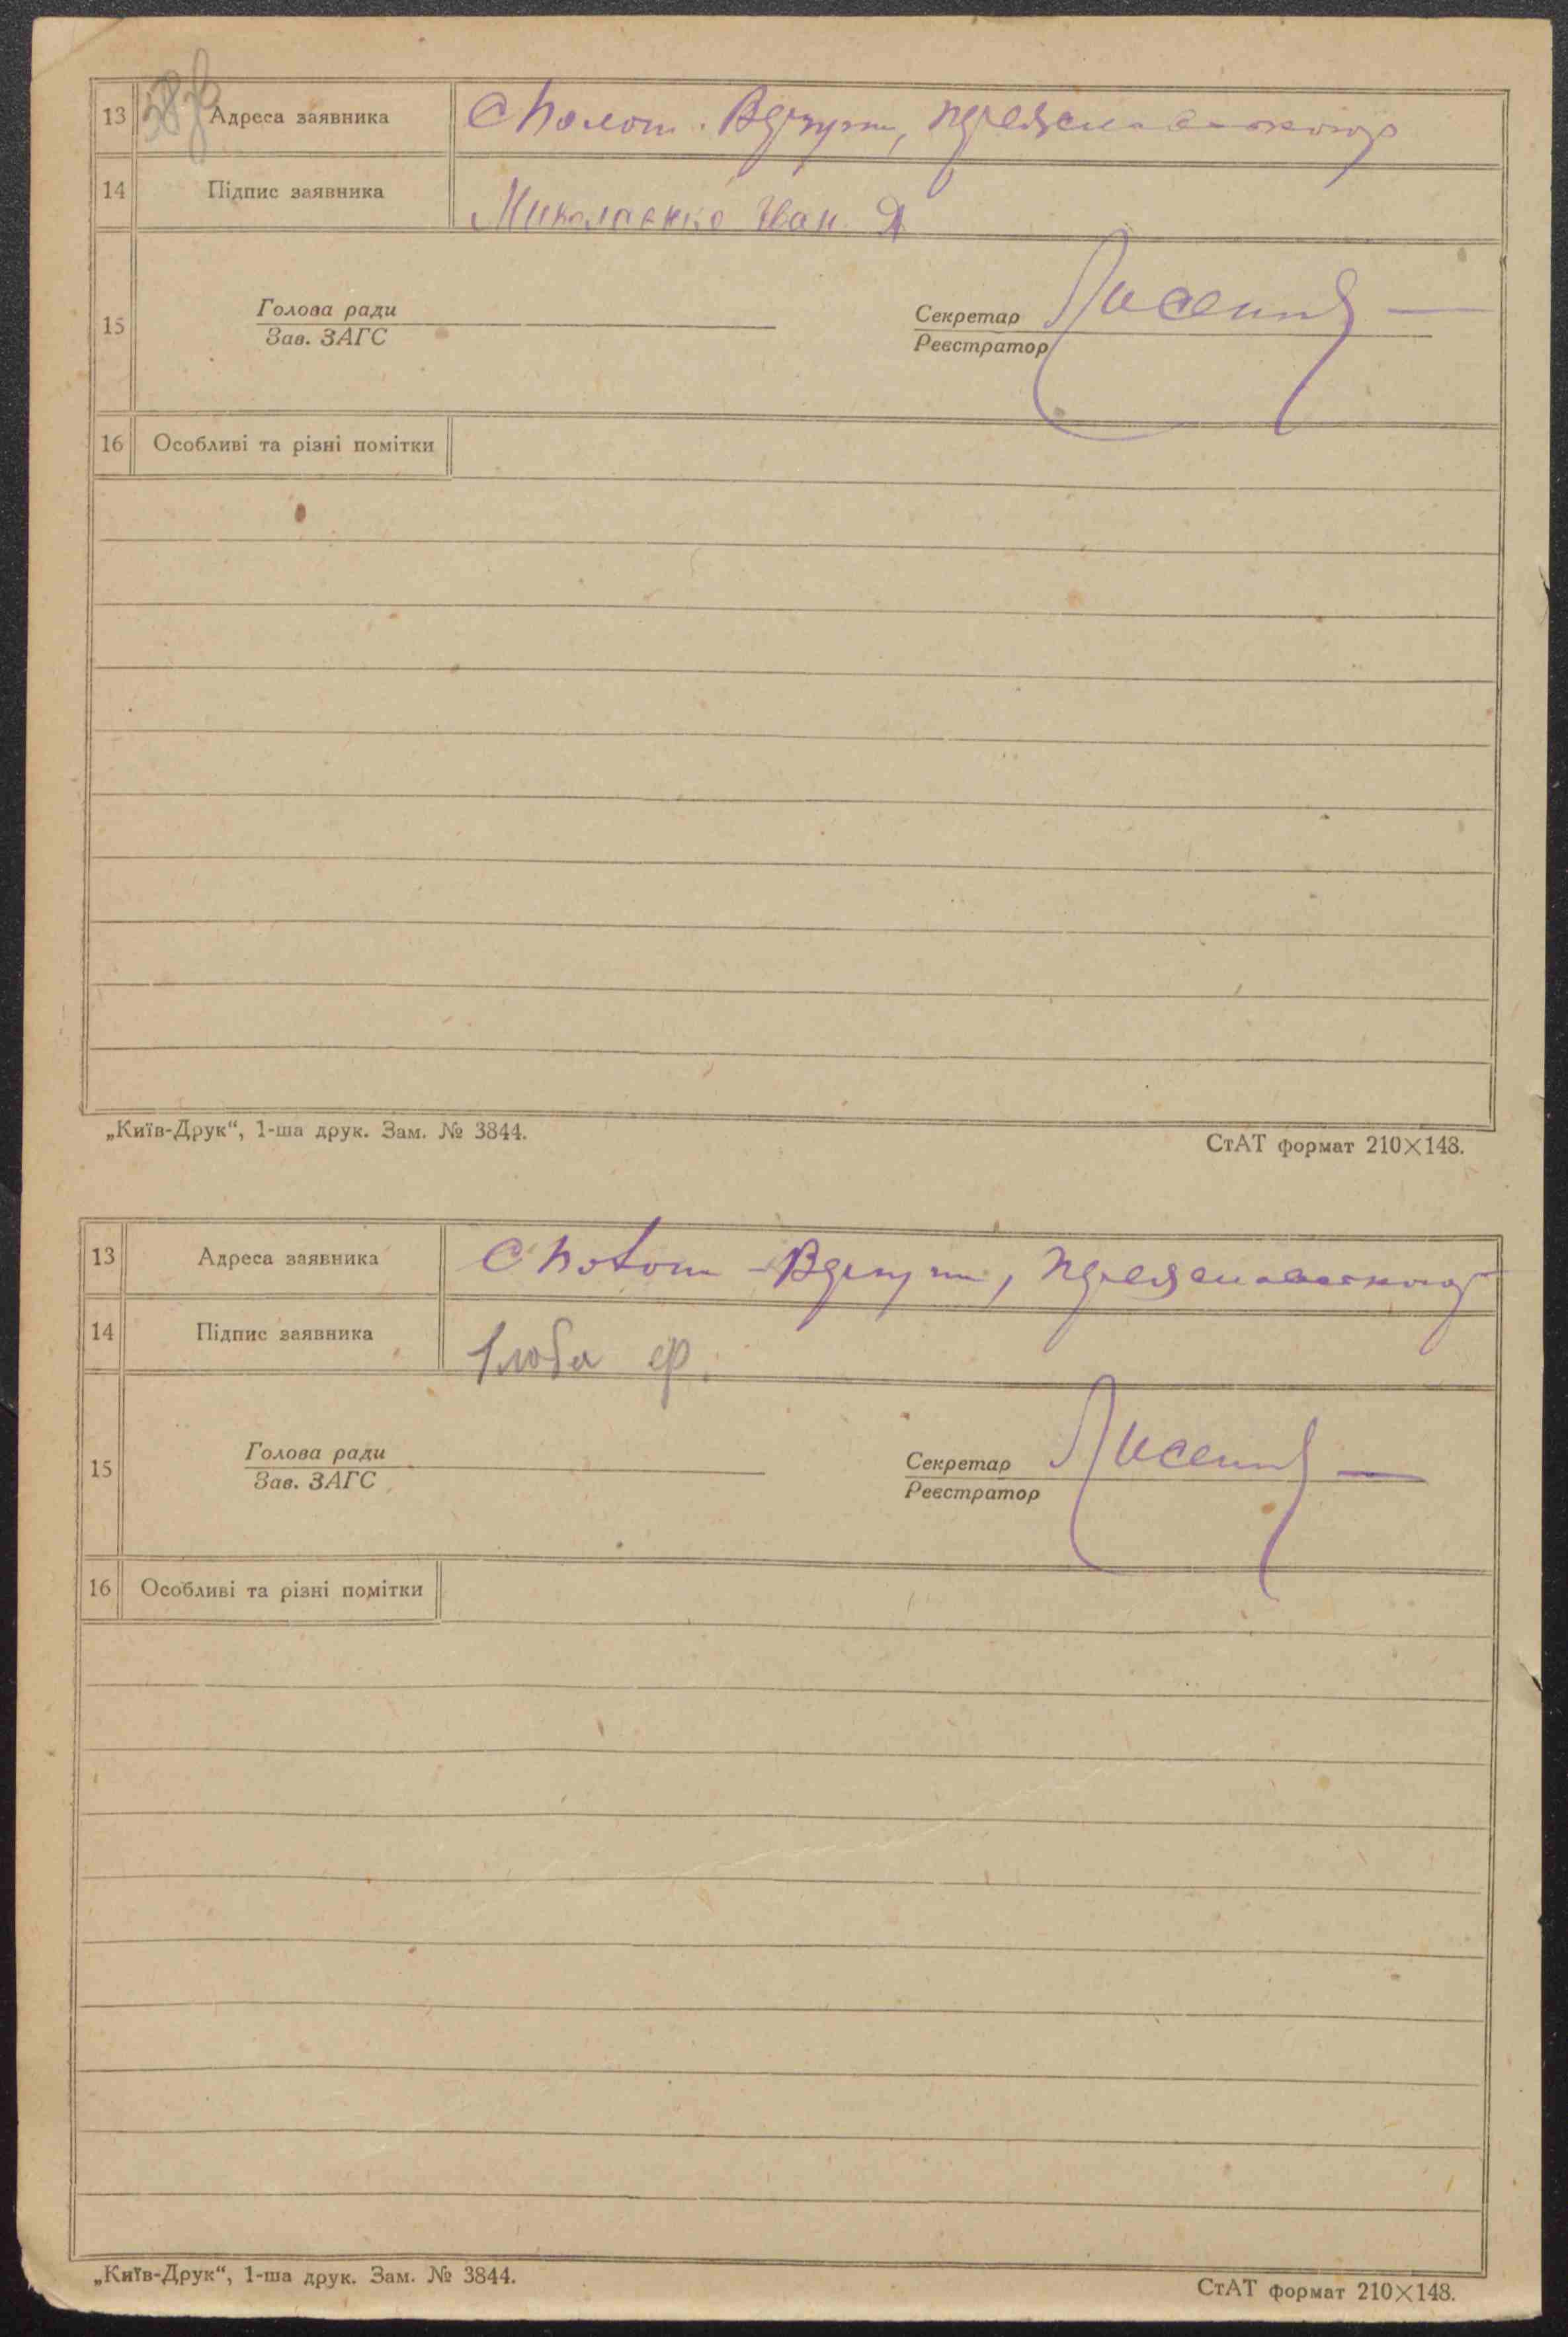 13 Адреса заявника
14 Підпис заявника Миколаєнко Іван. Д
15 Голова ради Секретар Лисенко
Зав. ЗАГС Реєстратор
16 Особливі та різні помітки
„Київ-Друк“, 1-ша друк. Зам. № 3844. СтАТ формат 210×148.
13 Адреса заявника
14 Підпис заявника Глоба Ф.
15 Голова ради Секретар Лисенко
Зав. ЗАГС Реєстратор
16 Особливі та різні помітки
„Київ-Друк“, 1-ша друк. Зам. № 3844. СтАТ формат 210×148.